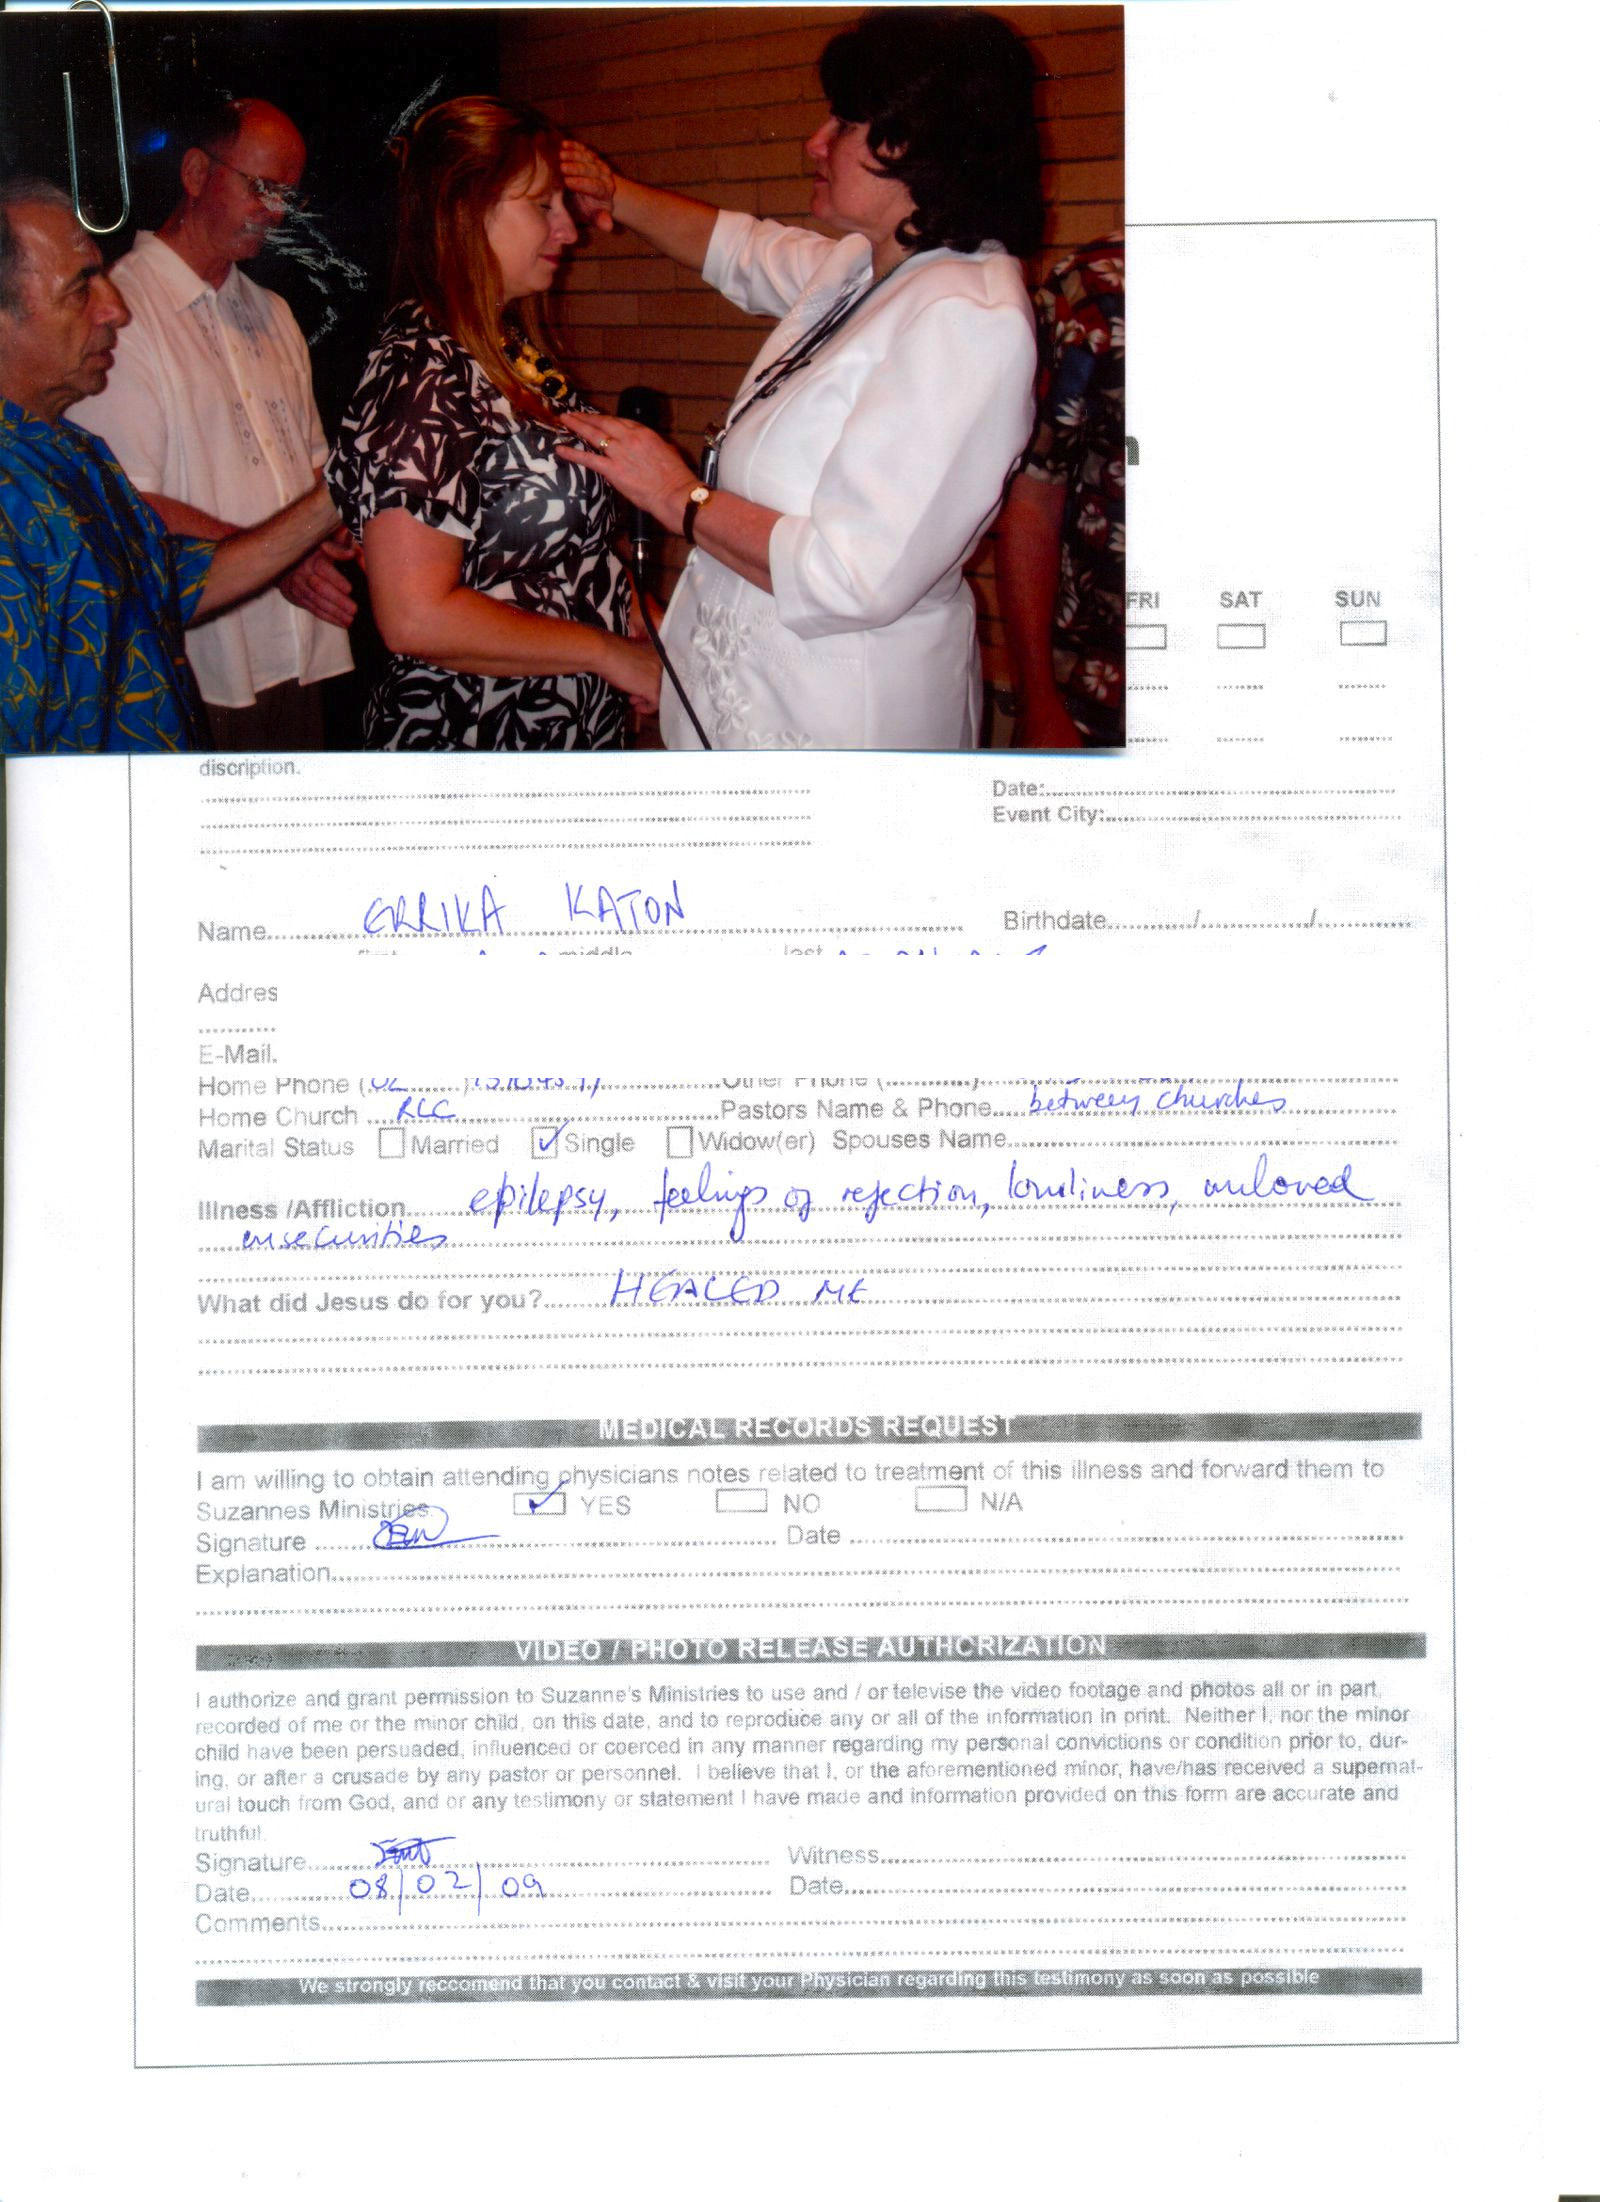 FRI SAT SUN
discription.
Date:
Event City:
Name ERRIKA KATON Birthdate / /
middle last
Addres
E-Mail.
Home Phone ( Other Phone (
Home Church RLC Pastors Name & Phone between churches
Marital Status Married Single Widow(er) Spouses Name
Illness /Affliction epilepsy, feelings of rejection, lonliness, unloved
insecurities
What did Jesus do for you? HEALED ME
MEDICAL RECORDS REQUEST
I am willing to obtain attending physicians notes related to treatment of this illness and forward them to
Suzannes Ministries. YES NO N/A
Signature Date
Explanation
VIDEO / PHOTO RELEASE AUTHORIZATION
I authorize and grant permission to Suzanne's Ministries to use and / or televise the video footage and photos all or in part,
recorded of me or the minor child, on this date, and to reproduce any or all of the information in print. Neither I, nor the minor
child have been persuaded, influenced or coerced in any manner regarding my personal convictions or condition prior to, dur-
ing, or after a crusade by any pastor or personnel. I believe that I, or the aforementioned minor, have/has received a supernat-
ural touch from God, and or any testimony or statement I have made and information provided on this form are accurate and
truthful.
Signature Witness
Date 08/02/09 Date
Comments
We strongly reccomend that you contact & visit your Physician regarding this testimony as soon as possible